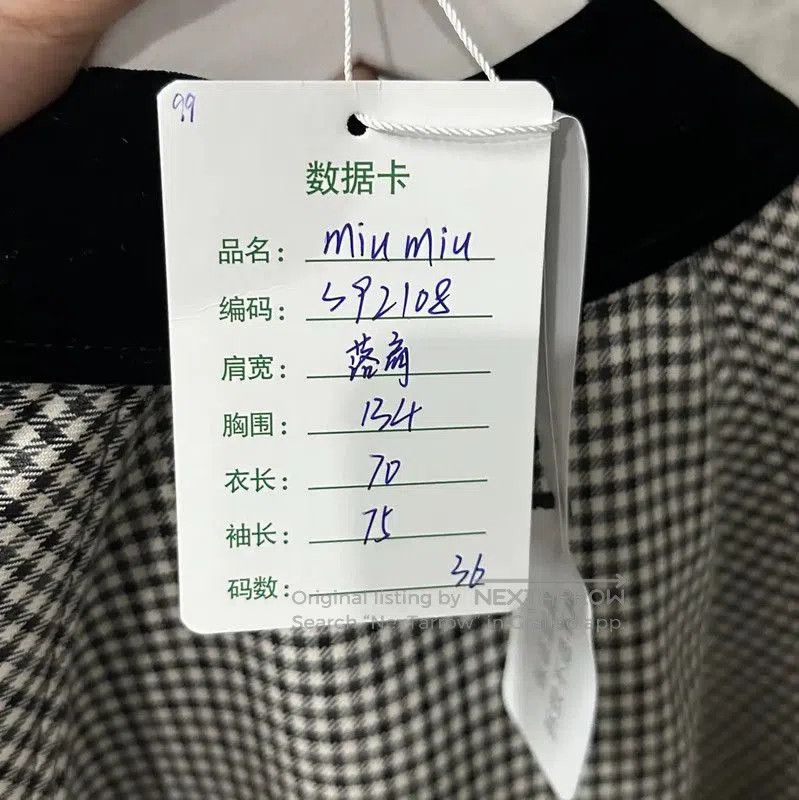 99
数据卡
品名： miu miu
编码： S92108
肩宽： 落肩
胸围： 134
衣长： 70
袖长： 75
码数： 36
Original listing by NEXTARROW
Search "Nextarrow" in Grailed app